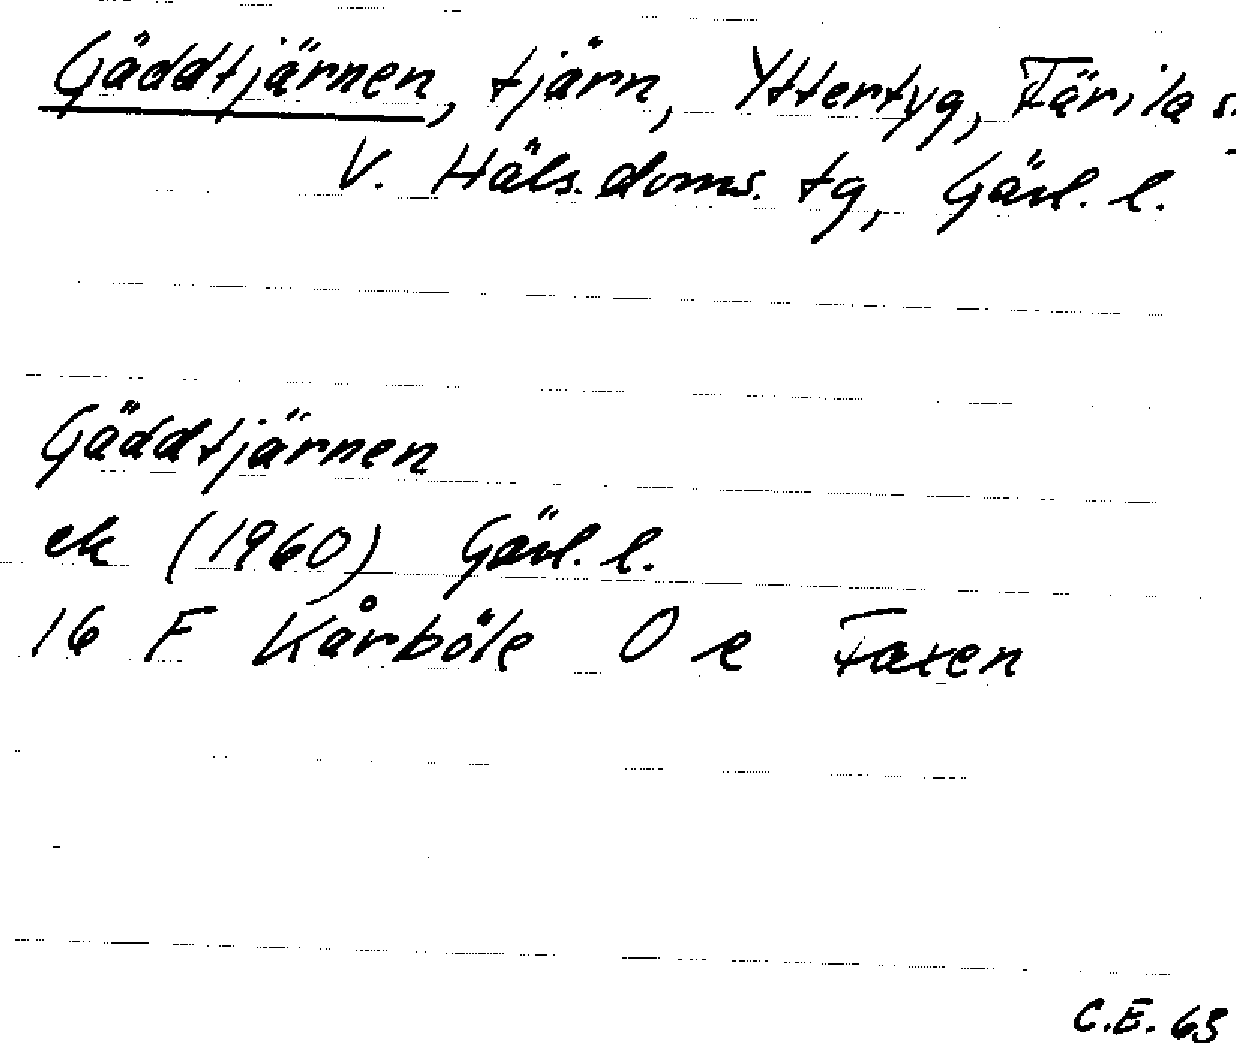 Gäddtjärnen, tjärn, Yttertyg, Färila s.
V. Häls. doms. tg, Gävl. l.
Gäddtjärnen
ek (1960) Gävl. l.
16 F Kårböle O e Faxen
C.E. 63